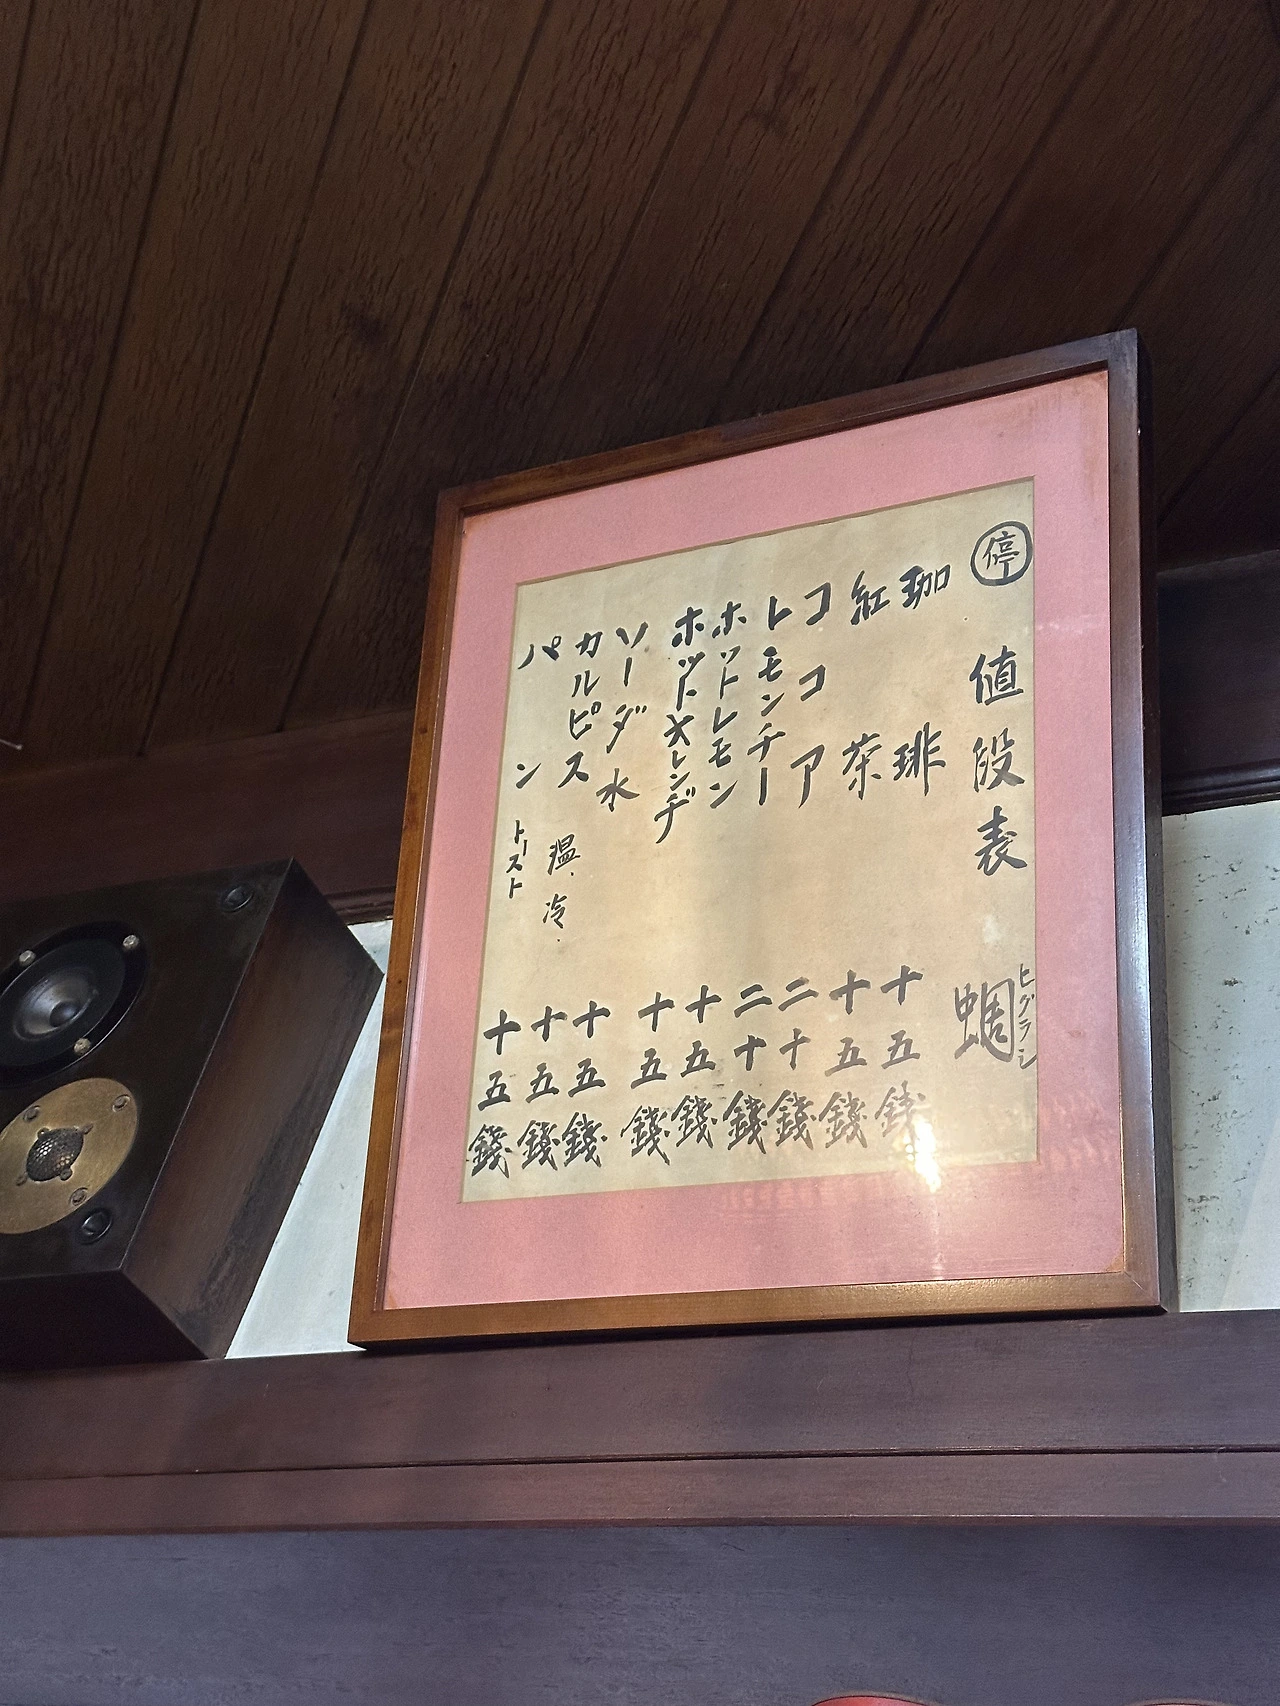 停 値段表 蜩 ヒグラシ
珈琲 十五銭
紅茶 十五銭
ココア 二十銭
レモンチー 二十銭
ホットレモン 十五銭
ホットオレンヂ 十五銭
ソーダ水 十五銭
カルピス 温、冷. 十五銭
パン トースト 十五銭